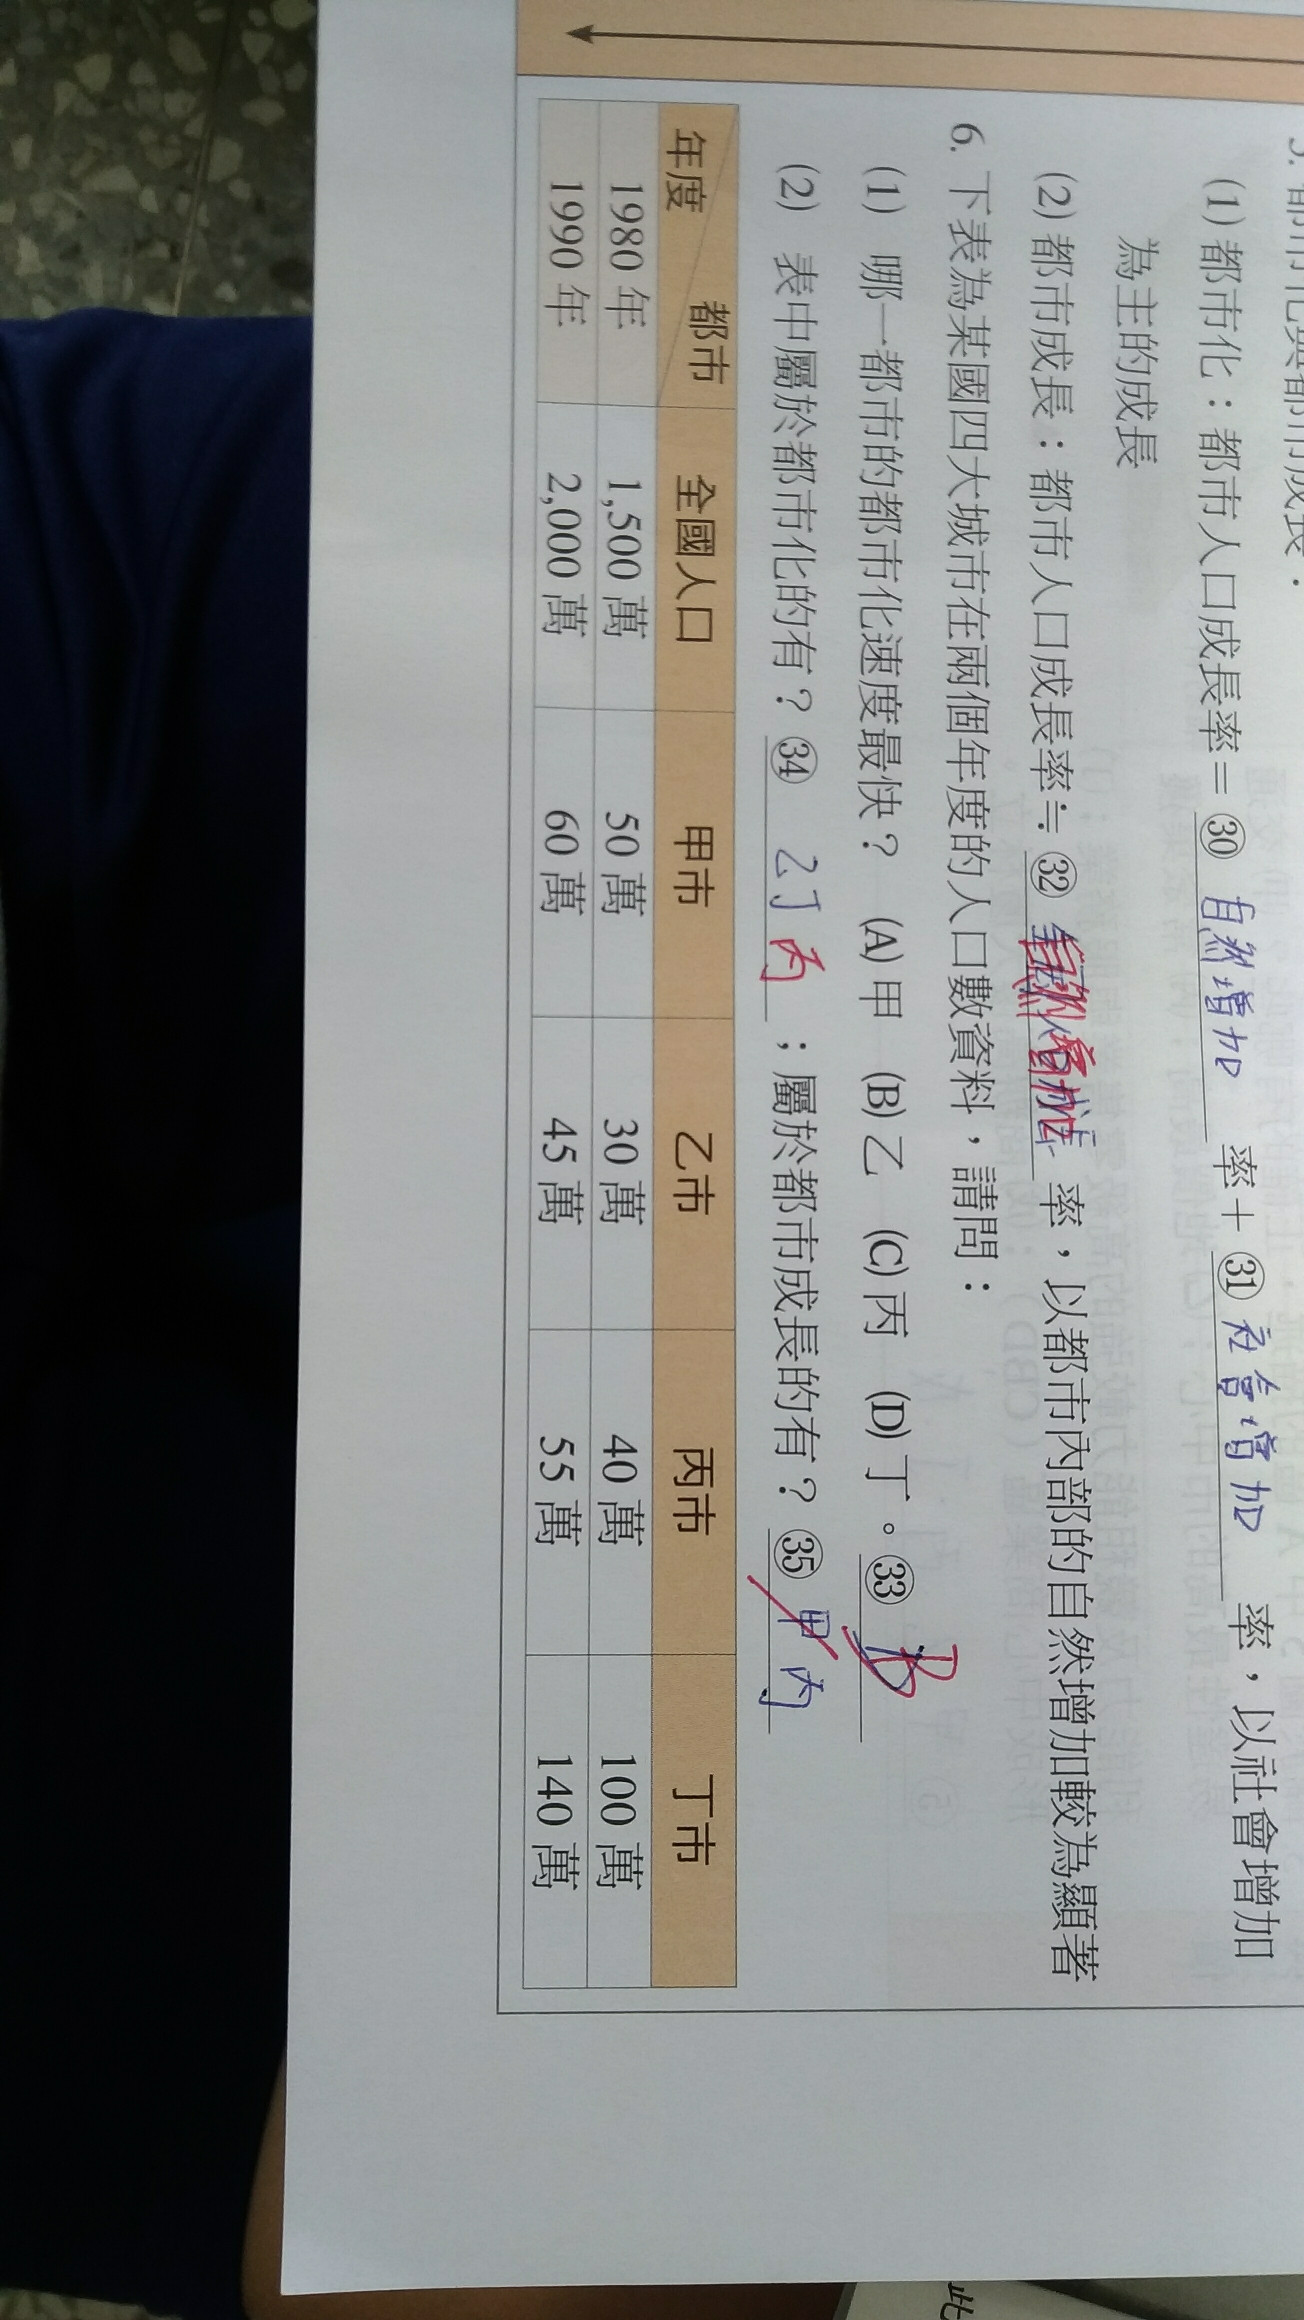 5. 都市化與都市成長：
(1) 都市化：都市人口成長率＝㉚ 自然增加 率＋㉛ 社會增加 率，以社會增加
為主的成長
(2) 都市成長：都市人口成長率≒㉜ 自然增加 率，以都市內部的自然增加較為顯著
6. 下表為某國四大城市在兩個年度的人口數資料，請問：
(1) 哪一都市的都市化速度最快？ (A) 甲 (B) 乙 (C) 丙 (D) 丁。㉝ B
(2) 表中屬於都市化的有？㉞ 乙丁丙 ；屬於都市成長的有？㉟ 甲丙
年度 都市 全國人口 甲市 乙市 丙市 丁市
1980 年 1,500 萬 50 萬 30 萬 40 萬 100 萬
1990 年 2,000 萬 60 萬 45 萬 55 萬 140 萬
此